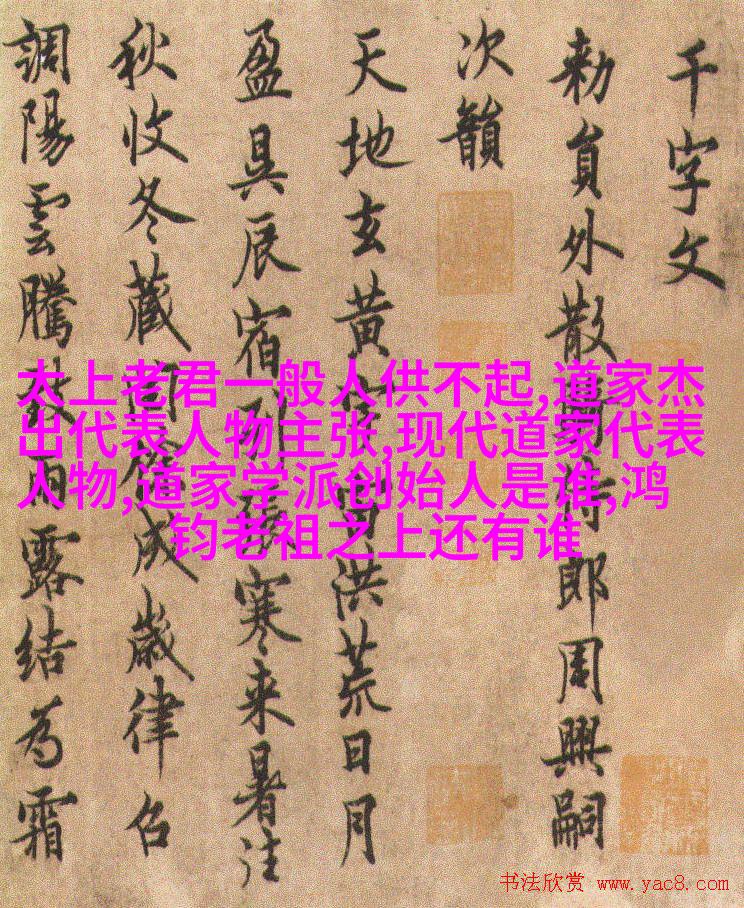 千字文
勑員外散騎侍郎周興嗣
次韻
天地玄黃宇宙洪荒日月
盈昃辰宿列張寒来暑往
秋收冬藏閏餘成歲律召
調陽雲騰致雨露結為霜
太上老君一般人供不起,道家杰
出代表人物主张,现代道家代表
人物,道家学派创始人是谁,鸿
钧老祖之上还有谁
书法欣赏 www.yac8.com